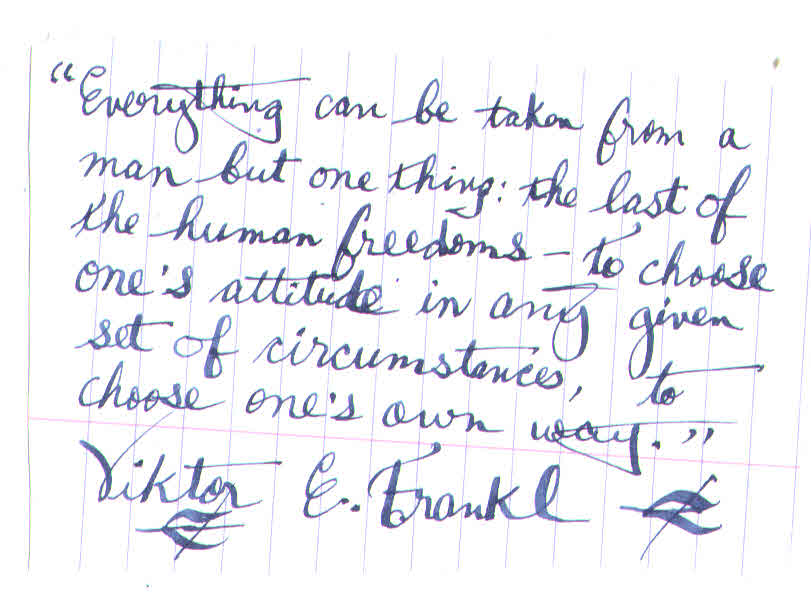 “Everything can be taken from a
man but one thing: the last of
the human freedoms – to choose
one's attitude in any given
set of circumstances, to
choose one's own way.”
Viktor E. Frankl